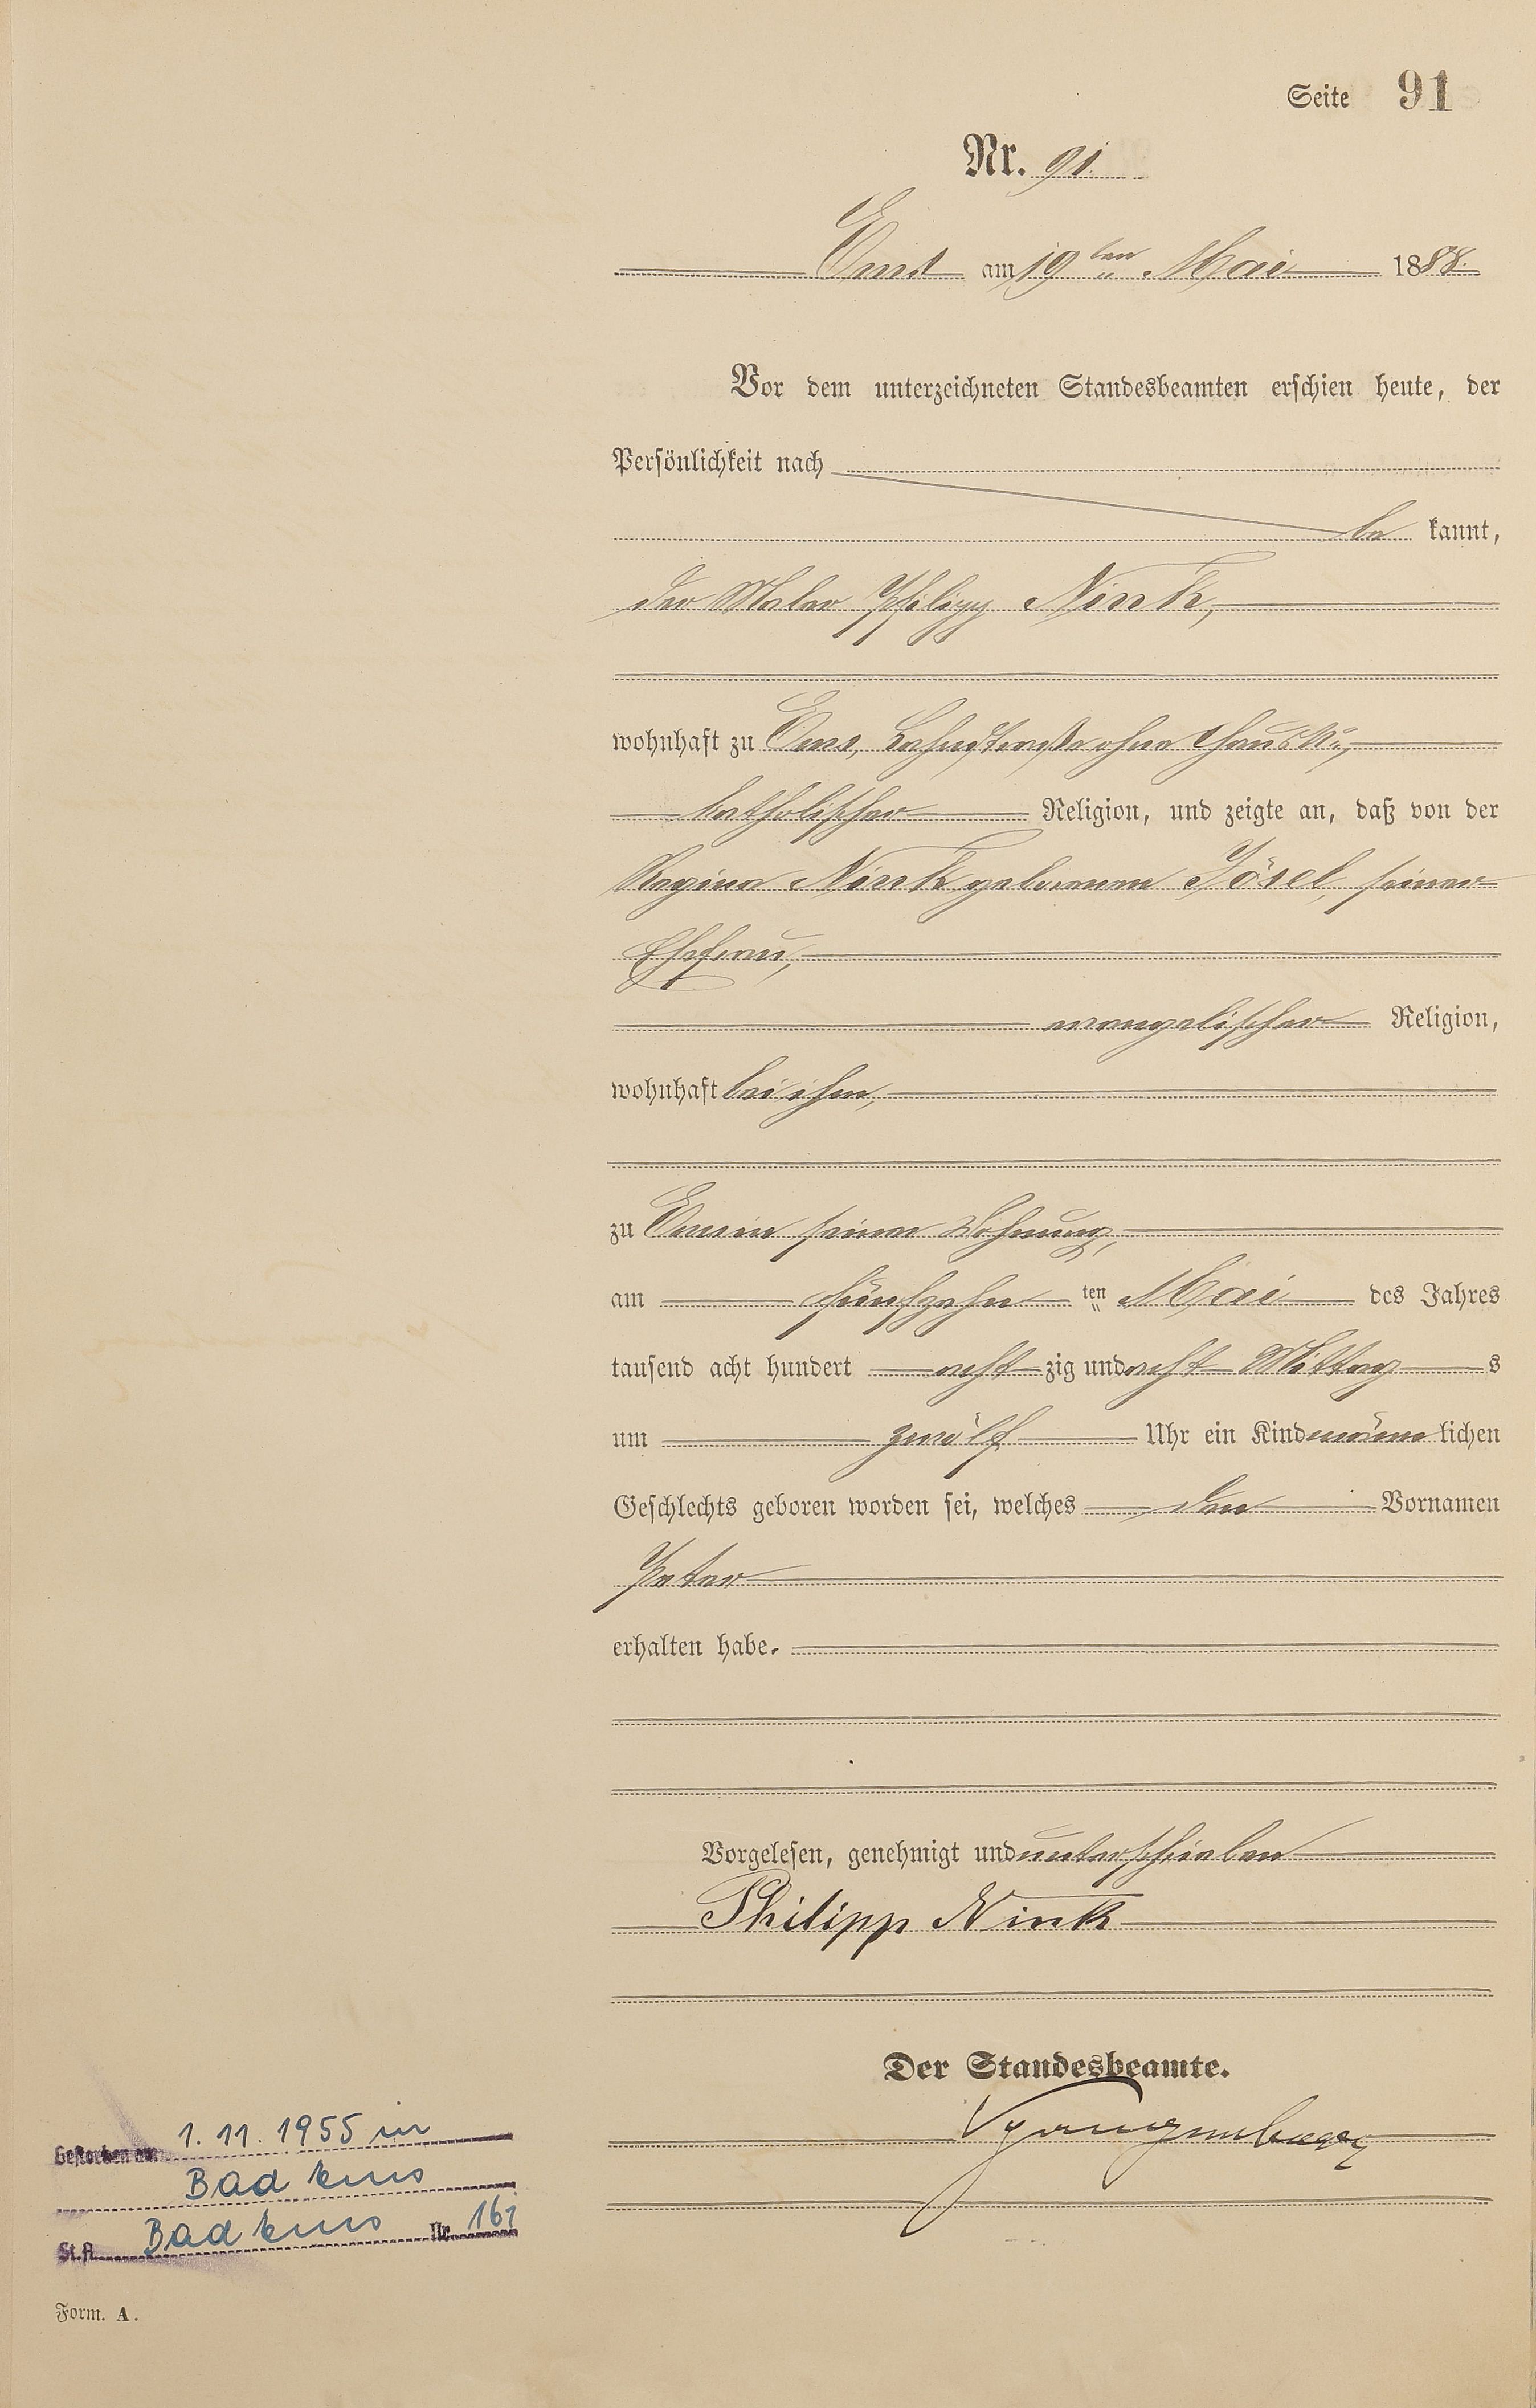 Seite 91
Nr. 91.
Ems am 19ten Mai 1888.
Vor dem unterzeichneten Standesbeamten erschien heute, der
Persönlichkeit nach
be kannt,
der Maler Philipp Nink,
wohnhaft zu Ems, Lahnstraße ohne Haus Nr.,
katholischer Religion, und zeigte an, daß von der
Regina Nink geborenen Jösel, seiner
Ehefrau,
evangelischer Religion,
wohnhaft bei ihm,
zu Ems in seiner Wohnung,
am fünfzehn ten Mai des Jahres
tausend acht hundert acht zig und acht Mittag s
um zwölf Uhr ein Kind männ lichen
Geschlechts geboren worden sei, welches den Vornamen
Peter
erhalten habe.
Vorgelesen, genehmigt und unterschrieben
Philipp Nink
Der Standesbeamte.
Gestorben am 1. 11. 1955 in
Bad Ems
St.A. Bad Ems Nr. 161
Form. A.